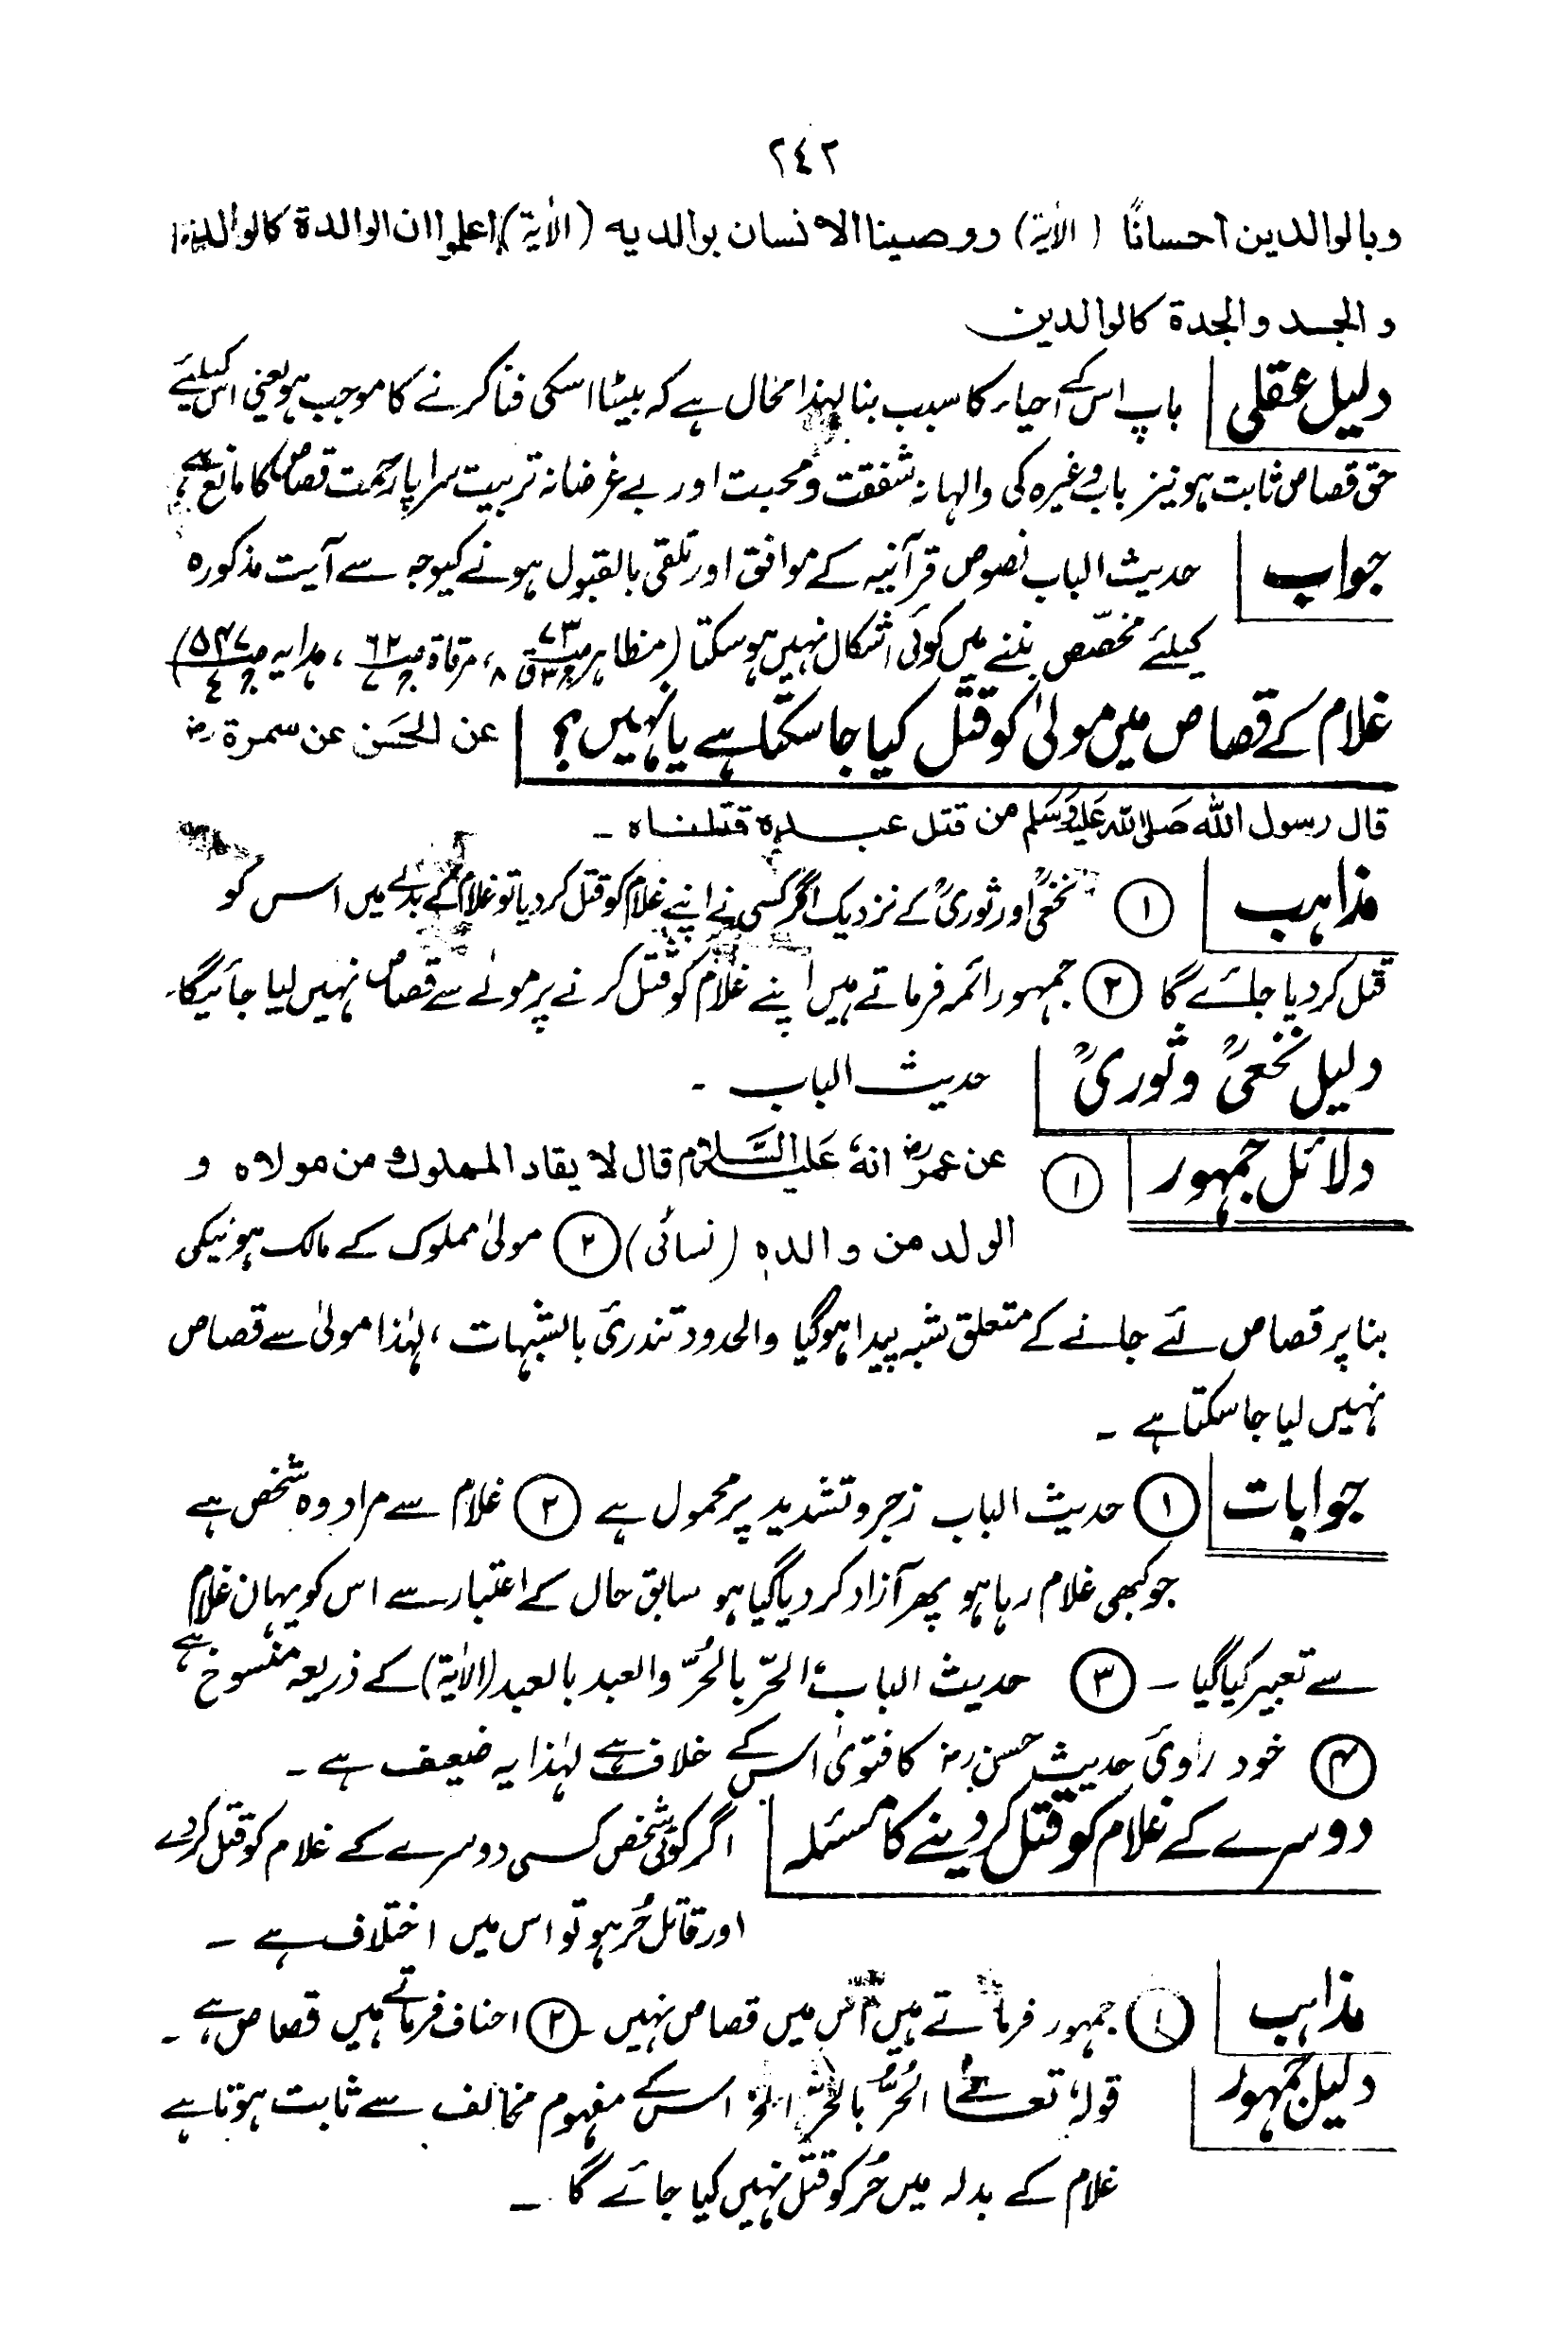 ٢٤٢
وبالوالدين احسانًا (الآية) ووصينا الانسان بوالديه (الآية) اعلموا ان الوالدة كالوالد
والجد والجدة كالوالدين
دلیل عقلی | باپ اس کے احیاء کا سبب بنا لہذا محال ہے کہ بیٹا اسکی فنا کرنے کا موجب ہو یعنی اس کیلئے
حق قصاص ثابت ہو نیز باپ وغیرہ کی والہانہ شفقت و محبت اور بے غرضانہ تربیت سراپا رحمت قصاص کا مانع ہے
جواب | حدیث الباب نصوص قرآنیہ کے موافق اور تلقی بالقبول ہونے کیوجہ سے آیت مذکورہ
کیلئے مخصّص بننے میں کوئی اشکال نہیں ہو سکتا (مظاہر ، مرقاة ص٦٢ ج٧ ، ہدایہ ص٥٤٧ ج٤)
غلام کے قصاص میں مولیٰ کو قتل کیا جا سکتا ہے یا نہیں؟ | عن الحسن عن سمرة رض
قال رسول الله صلى الله عليه وسلم من قتل عبده قتلناه ۔
مذاہب | ① نخعیؒ اور ثوریؒ کے نزدیک اگر کسی نے اپنے غلام کو قتل کر دیا تو غلام کے بدلے میں اس کو
قتل کر دیا جائے گا ② جمہور ائمہ فرماتے ہیں اپنے غلام کو قتل کرنے پر مولے سے قصاص نہیں لیا جائیگا۔
دلیل نخعیؒ و ثوریؒ | حدیث الباب ۔
دلائل جمہور | ① عن عمر رض انه عليه السلام قال لا يقاد المملوك من مولاه و
الولد من والده (نسائی) ② مولیٰ مملوک کے مالک ہونیکی
بنا پر قصاص لئے جانے کے متعلق شبہ پیدا ہو گیا والحدود تندرئ بالشبہات ، لہٰذا مولیٰ سے قصاص
نہیں لیا جا سکتا ہے ۔
جوابات | ① حدیث الباب زجر و تشدید پر محمول ہے ② غلام سے مراد وہ شخص ہے
جو کبھی غلام رہا ہو پھر آزاد کر دیا گیا ہو سابق حال کے اعتبار سے اس کو یہاں غلام
سے تعبیر کیا گیا ۔ ③ حدیث الباب الحرّ بالحُرّ والعبد بالعبد (الآیة) کے ذریعہ منسوخ ہے
④ خود راوئ حدیث حسن رض کا فتویٰ اس کے خلاف ہے لہٰذا یہ ضیعف ہے ۔
دوسرے کے غلام کو قتل کر دینے کا مسئلہ | اگر کوئی شخص کسی دوسرے کے غلام کو قتل کر دے
اور قاتل حُر ہو تو اس میں اختلاف ہے ۔
مذاہب | ① جمہور فرماتے ہیں اس میں قصاص نہیں ۔ ② احناف فرماتے ہیں قصاص ہے ۔
دلیل جمہور | قولہ تعالےٰ الحُرُّ بالحُرِّ الخ اس کے مفہوم مخالف سے ثابت ہوتا ہے
غلام کے بدلہ میں حُر کو قتل نہیں کیا جائے گا ۔